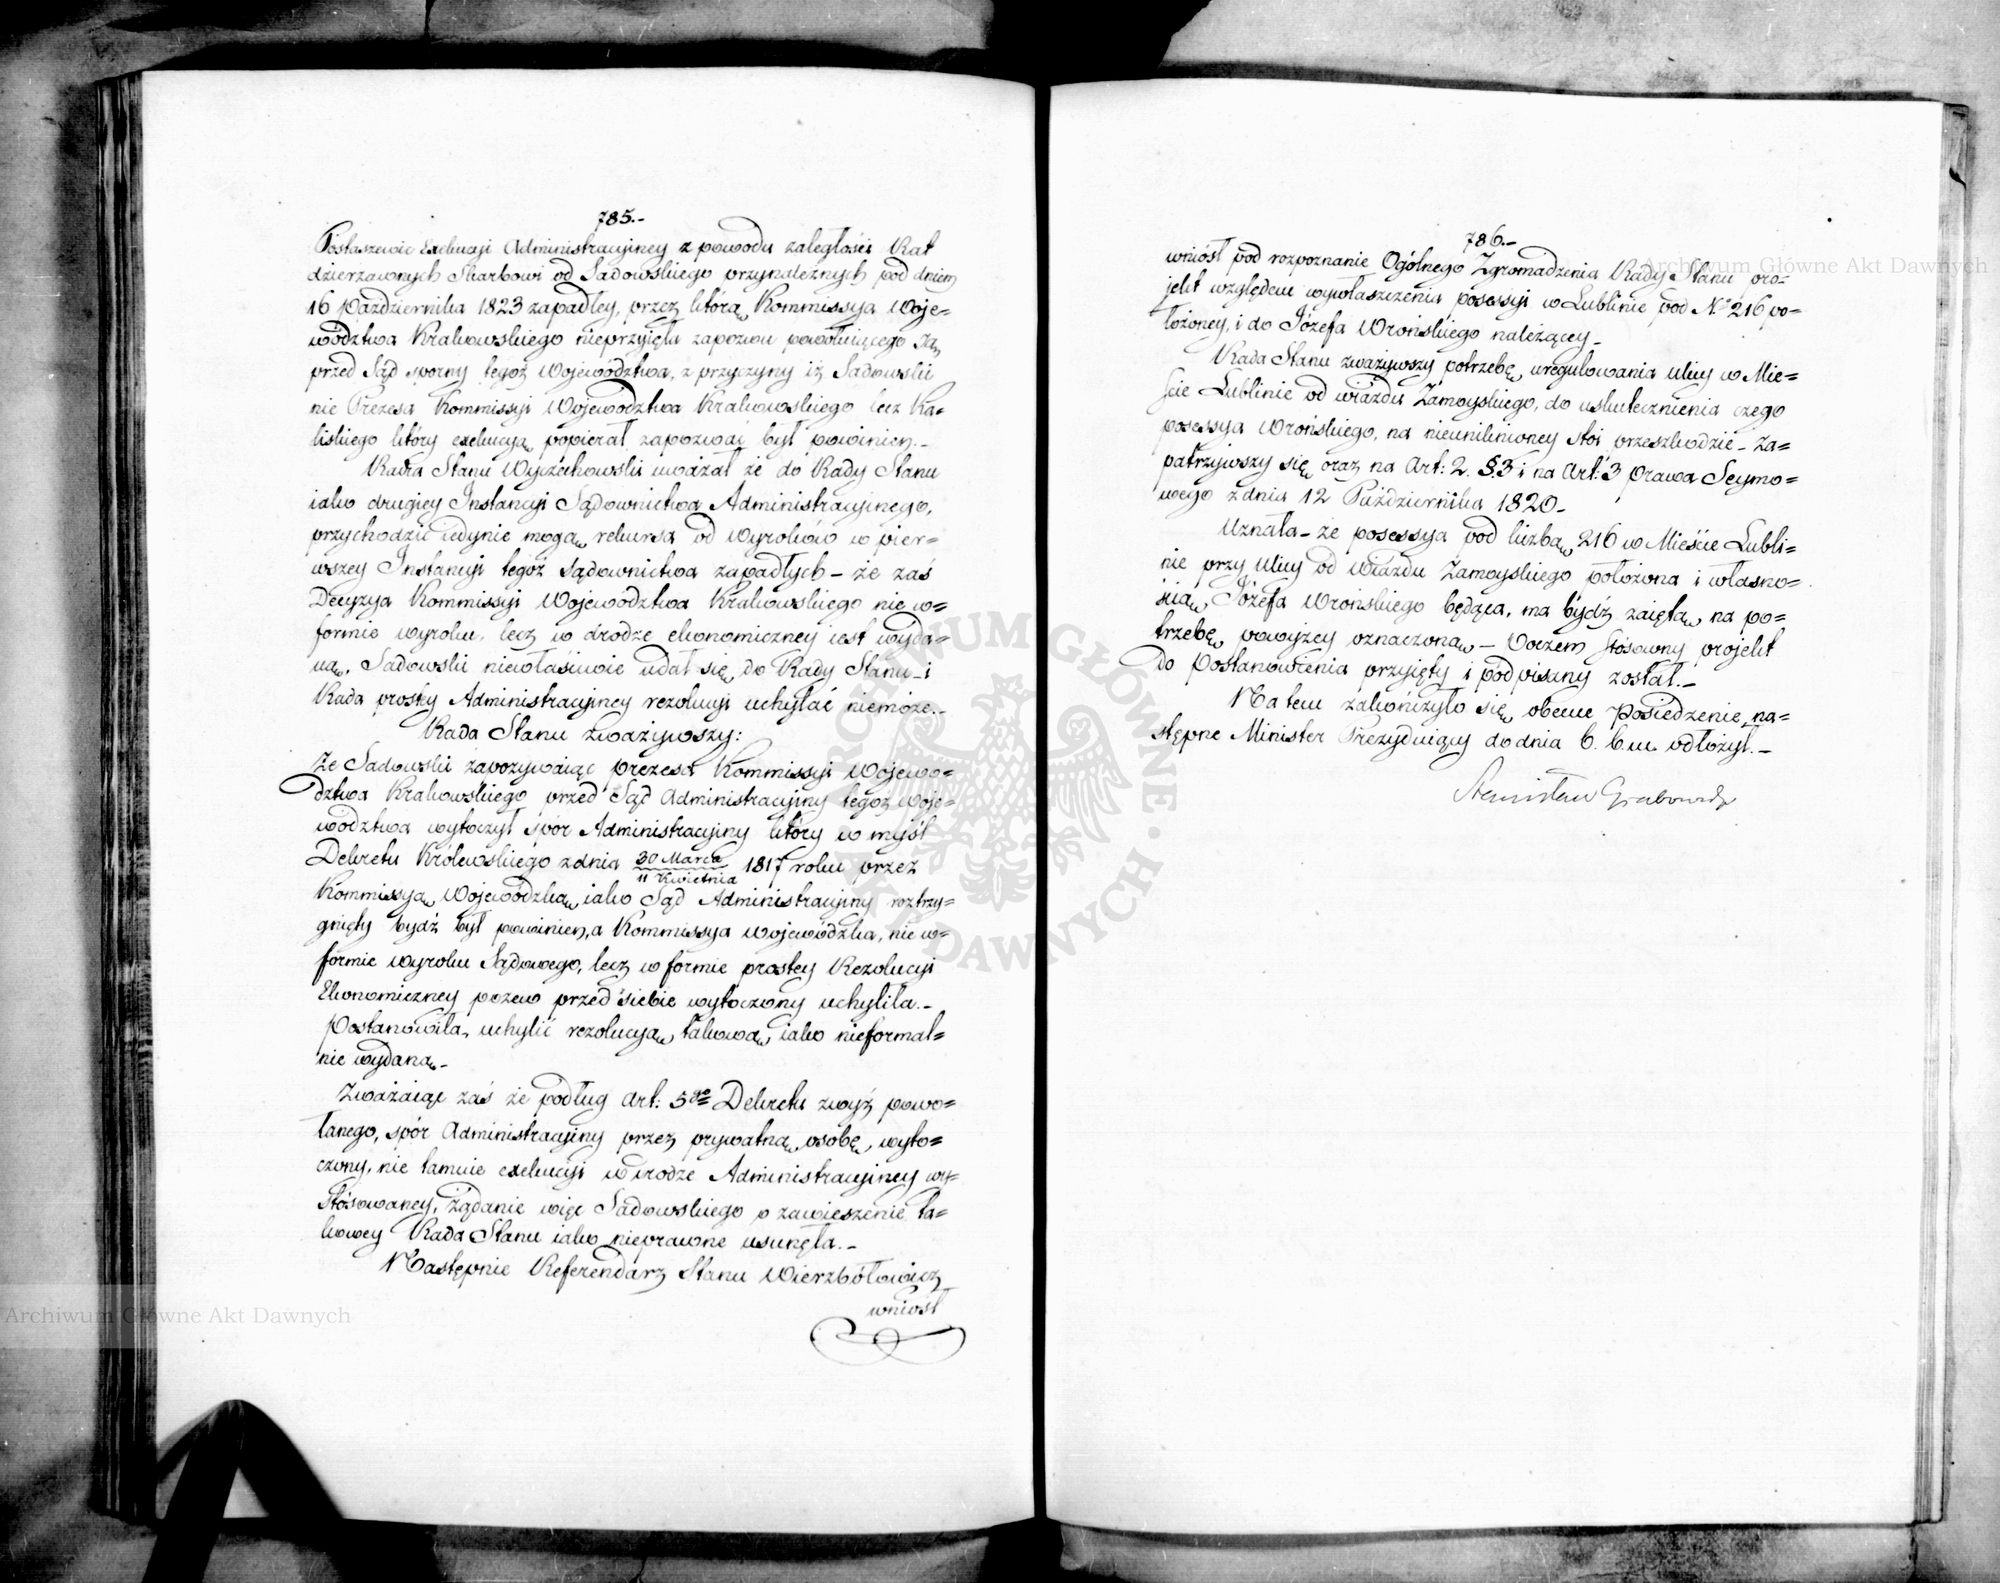 785.-
Postaszewic Exekucyi Administracyiney z powodu zaległości Rat
dzierzawnych Skarbowi od Sadowskiego przynależnych pod dniem
16 Października 1823 zapadłey, przez którą Kommissya Woje=
wództwa Krakowskiego nieprzyięła zapozwu powołuiącego Ją
przed Sąd sporny tegoż Województwa, z przyczyny iż Sadowski
nie Prezesa Kommissyi Województwa Krakowskiego lecz Ka=
liskiego który exekucyą popierał zapozwać był powinien.-
Radca Stanu Wyczechowski uważał że do Rady Stanu
iako drugiey Instancyi Sądownictwa Administracyinego,
przychodzić iedynie mogą rekursa od Wyroków w pier=
wszey Instancyi tegoż Sądownictwa zapadłych - że zaś
Decyzya Kommissyi Województwa Krakowskiego nie w=
formie wyroku, lecz w drodze ekonomiczney iest wyda=
ną, Sadowski niewłaściwie udał się do Rady Stanu - i
Rada prostey Administracyiney rezolucyi uchylać niemoże.-
Rada Stanu zważywszy:
Że Sadowski zapozywaiąc prezesa Kommissyi Wojewo=
dztwa Krakowskiego przed Sąd Administracyiny tegoż Woje=
wództwa wytoczył spór Administracyiny który w myśl
Dekretu Królewskiego z dnia 30 Marca / 11 Kwietnia 1817 roku przez
Kommissyą Wojewódzką, iako Sąd Administracyiny roztrzy=
gnięty bydź był powinien, a Kommissya Wojewódzka, nie w=
formie wyroku Sądowego, lecz w formie prostey Rezolucyi
Ekonomiczney pozew przed siebie wytoczony uchyliła.-
Postanowiła, uchylić rezolucyą takową, iako nieformal=
nie wydaną.-
Zważaiąc zaś że podług Art: 5go Dekretu zwyż powo=
łanego, spór Administracyiny przez prywatną osobę wyto=
czony, nie tamuie exekucyi w drodze Administracyiney wy=
stósowaney, żądanie więc Sadowskiego o zawieszenie ta=
kowey Rada Stanu iako nieprawne usunęła.-
Następnie Referendarz Stanu Wierzbółowicz
wniósł
786.-
wniósł pod rozpoznanie Ogólnego Zgromadzenia Rady Stanu pro=
jekt względem wywłaszczenia posessyi w Lublinie pod No 216 po=
łożoney, i do Józefa Wrońskiego należącey.
Rada Stanu zważywszy potrzebę uregulowania ulicy w Mie=
ście Lublinie od wiazdu Zamoyskiego, do uskutecznienia czego
posessya Wrońskiego, na nieuniknioney stoi przeszkodzie - Za=
patrzywszy się oraz na Art: 2. §. 3 i na Art: 3 Prawa Seymo=
wego z dnia 12 Października 1820.
Uznała - że posessya pod liczbą 216 w Mieście Lubli=
nie przy ulicy od wiazdu Zamoyskiego położona i własno=
ścią Józefa Wrońskiego będąca, ma bydź zaiętą na po=
trzebę powyżey oznaczoną - Poczem stósowny projekt
do Postanowienia przyięty i podpisany został.-
Na tem zakończyło się obecne Posiedzenie na=
stępne Minister Prezyduiący do dnia 6. b.m. odłożył.-
Stanisław Grabowski
Archiwum Główne Akt Dawnych
Archiwum Główne Akt Dawnych
ARCHIWUM GŁÓWNE · AKT DAWNYCH ·